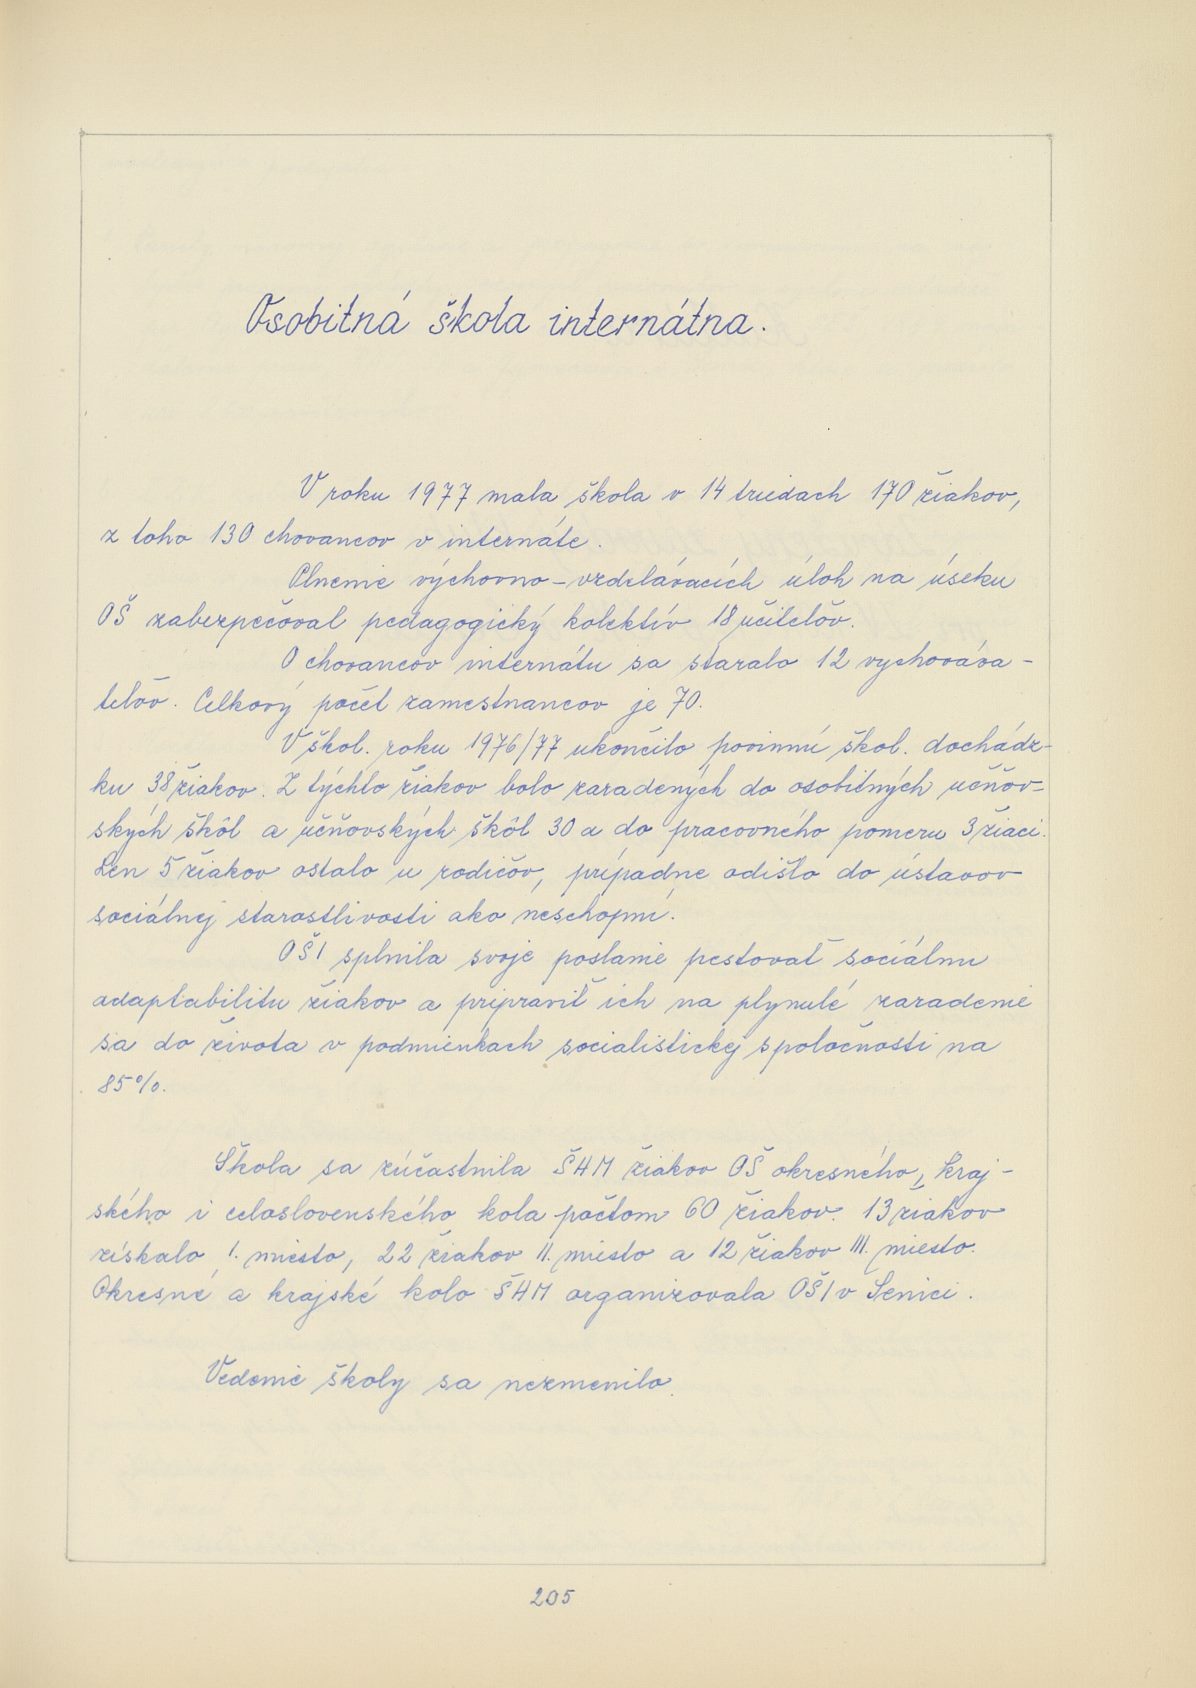 Osobitná škola internátna.
V roku 1977 mala škola v 14 triedach 170 žiakov,
z toho 130 chovancov v internáte.
Plnenie výchovno-vzdelávacích úloh na úseku
OŠ zabezpečoval pedagogický kolektív 18 učiteľov.
O chovancov internátu sa staralo 12 vychováva-
teľov. Celkový počet zamestnancov je 70.
V škol. roku 1976/77 ukončilo povinnú škol. dochádz-
ku 38 žiakov. Z týchto žiakov bolo zaradených do osobitných učňov-
ských škôl a učňovských škôl 30 a do pracovného pomeru 3 žiaci.
Len 5 žiakov ostalo u rodičov, prípadne odišlo do ústavov
sociálnej starostlivosti ako neschopní.
OŠI splnila svoje poslanie pestovať sociálnu
adaptabilitu žiakov a pripraviť ich na plynulé zaradenie
sa do života v podmienkach socialistickej spoločnosti na
85%.
Škola sa zúčastnila ŠHM žiakov OŠ okresného, kraj-
ského i celoslovenského kola počtom 60 žiakov. 13 žiakov
získalo I. miesto, 22 žiakov II. miesto a 12 žiakov III. miesto.
Okresné a krajské kolo ŠHM organizovala OŠI v Senici.
Vedenie školy sa nezmenilo.
205